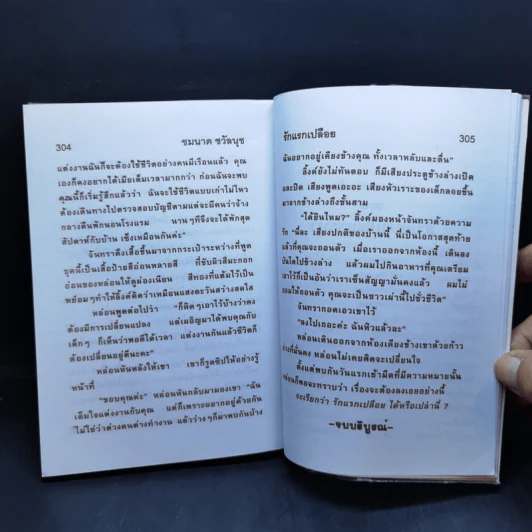 304
ชมนาด ชวัลนุช
แต่งงานฉันก็จะต้องใช้ชีวิตอย่างคนมีเรือนแล้ว คุณ
เองก็คงอยากได้เมียเต็มเวลามากกว่า ก่อนฉันจะพบ
คุณนี้ก็เริ่มรู้สึกแล้วว่า ฉันจะใช้ชีวิตแบบเก่าไม่ไหว
ต้องเดินทางไปตรวจสอบบัญชีตามแต่จะมีคนว่าจ้าง
กลางคืนพักนอนโรงแรม นานๆทีจึงจะได้พักสุด
สัปดาห์กับบ้าน เซ็งเหมือนกันค่ะ"
จันทราดึงเสื้อขึ้นมาจากกระเป๋าระหว่างที่พูด
ชุดนี้เป็นเสื้อป้ายสีอ่อนหลายสี ที่ขับผิวสีมะกอก
อ่อนของหล่อนให้ดูผ่องเนียน สีทองที่แต้มไว้เป็น
พร้อมๆทำให้ลิ้งค์คิดว่าเหมือนแสงตะวันสว่างสดใส
หล่อนพูดต่อไปว่า "ก็คิดๆเอาไว้บ้างว่าคง
ต้องมีการเปลี่ยนแปลง แต่เผอิญมาได้พบคุณกับ
เด็กๆ ก็เห็นว่าพอดีได้เวลา แต่งงานกันแล้วชีวิตก็
ต้องเปลี่ยนอยู่ดีนะคะ"
หล่อนหันหลังให้เขา เขาก็รูดซิปให้อย่างรู้
หน้าที่
"ขอบคุณค่ะ" หล่อนหันกลับมามองเขา "ฉัน
เต็มใจแต่งงานกับคุณ แต่ก็เพราะอยากอยู่ด้วยกัน
ไม่ใช่ว่าต่างคนต่างทำงาน แล้วว่างๆก็มาพบกันบ้าง
รักแรกเปลือย
305
ฉันอยากอยู่เคียงข้างคุณ ทั้งเวลาหลับและตื่น"
ลิ้งค์ยังไม่ทันตอบ ก็มีเสียงประตูข้างล่างเปิด
และปิด เสียงพูดเอะอะ เสียงหัวเราะของเด็กลอยขึ้น
มาจากข้างล่างถึงชั้นสาม
"ได้ยินไหม?" ลิ้งค์มองหน้าจันทราด้วยความ
รัก "นี่ละ เสียงปกติของบ้านนี้ นี่เป็นโอกาสสุดท้าย
แล้วที่คุณจะถอนตัว เมื่อเราออกจากห้องนี้ เดินลง
บันไดไปข้างล่าง แล้วผมไปกินอาหารที่คุณเตรียม
เอาไว้ก็เป็นอันว่าเราเซ็นสัญญามั่นคงแล้ว ผมไม่
ยอมให้ถอนตัว คุณจะเป็นชาวเผ่านี้ไปชั่วชีวิต"
จันทรากอดเอวเขาไว้
"ลงไปเถอะค่ะ ฉันหิวแล้วละ"
หล่อนเดินออกจากห้องเคียงข้างเขาด้วยก้าว
ย่างที่มั่นคง หล่อนไม่เคยคิดจะเปลี่ยนใจ
ตั้งแต่พบกันวันแรกเช้ามืดที่มีความหมายนั้น
หล่อนก็พอจะทราบว่า เรื่องจะต้องลงเอยอย่างนี้
จะเรียกว่า รักแรกเปลือย ได้หรือเปล่านี่ ?
-จบบริบูรณ์-